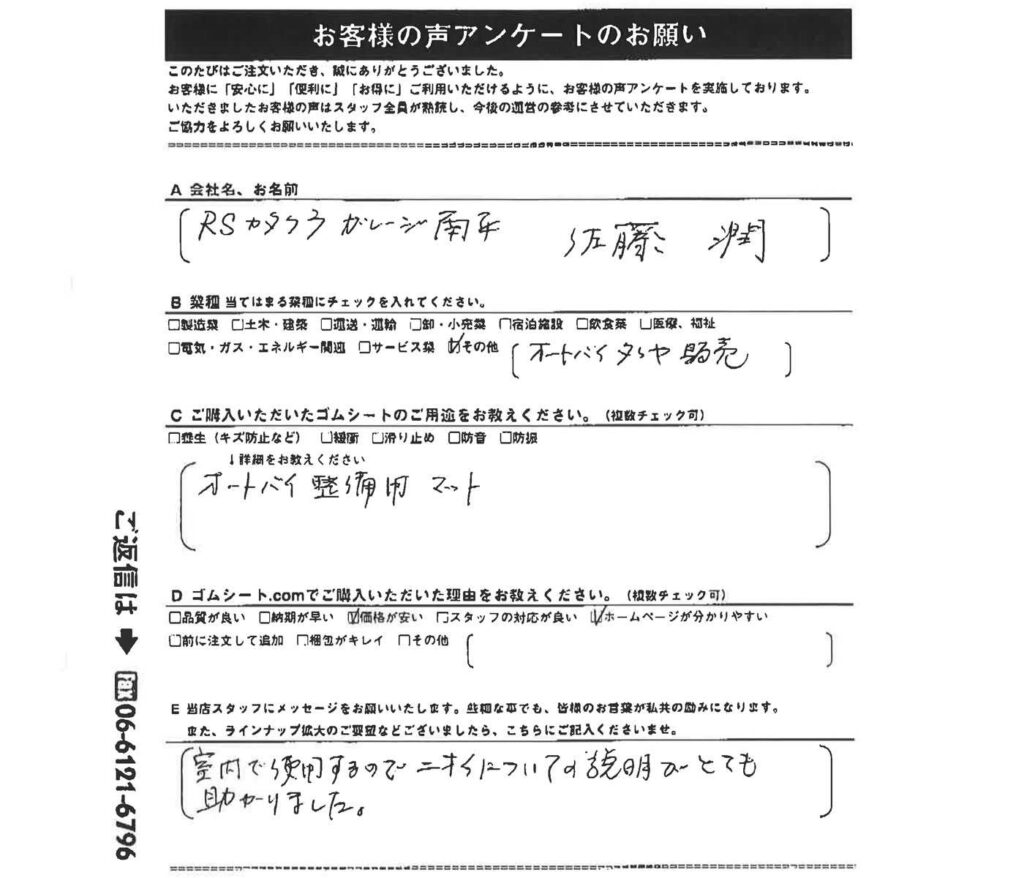 お客様の声アンケートのお願い
このたびはご注文いただき、誠にありがとうございました。
お客様に「安心に」「便利に」「お得に」ご利用いただけるように、お客様の声アンケートを実施しております。
いただきましたお客様の声はスタッフ全員が熟読し、今後の運営の参考にさせていただきます。
ご協力をよろしくお願いいたします。
A 会社名、お名前
RSカタクラ ガレージ南平 佐藤 潤
B 業種 当てはまる業種にチェックを入れてください。
□製造業 □土木・建築 □運送・運輸 □卸・小売業 □宿泊施設 □飲食業 □医療、福祉
□電気・ガス・エネルギー関連 □サービス業 ☑その他 (オートバイタイヤ販売)
C ご購入いただいたゴムシートのご用途をお教えください。(複数チェック可)
□養生(キズ防止など) □緩衝 □滑り止め □防音 □防振
↓詳細をお教えください
オートバイ整備用マット
D ゴムシート.comでご購入いただいた理由をお教えください。(複数チェック可)
□品質が良い □納期が早い ☑価格が安い □スタッフの対応が良い ☑ホームページが分かりやすい
□前に注文して追加 □梱包がキレイ □その他
E 当店スタッフにメッセージをお願いいたします。些細な事でも、皆様のお言葉が私共の励みになります。
また、ラインナップ拡大のご要望などございましたら、こちらにご記入くださいませ。
室内で使用するのでニオイについての説明がとても
助かりました。
ご返信は➡FAX06-6121-6796